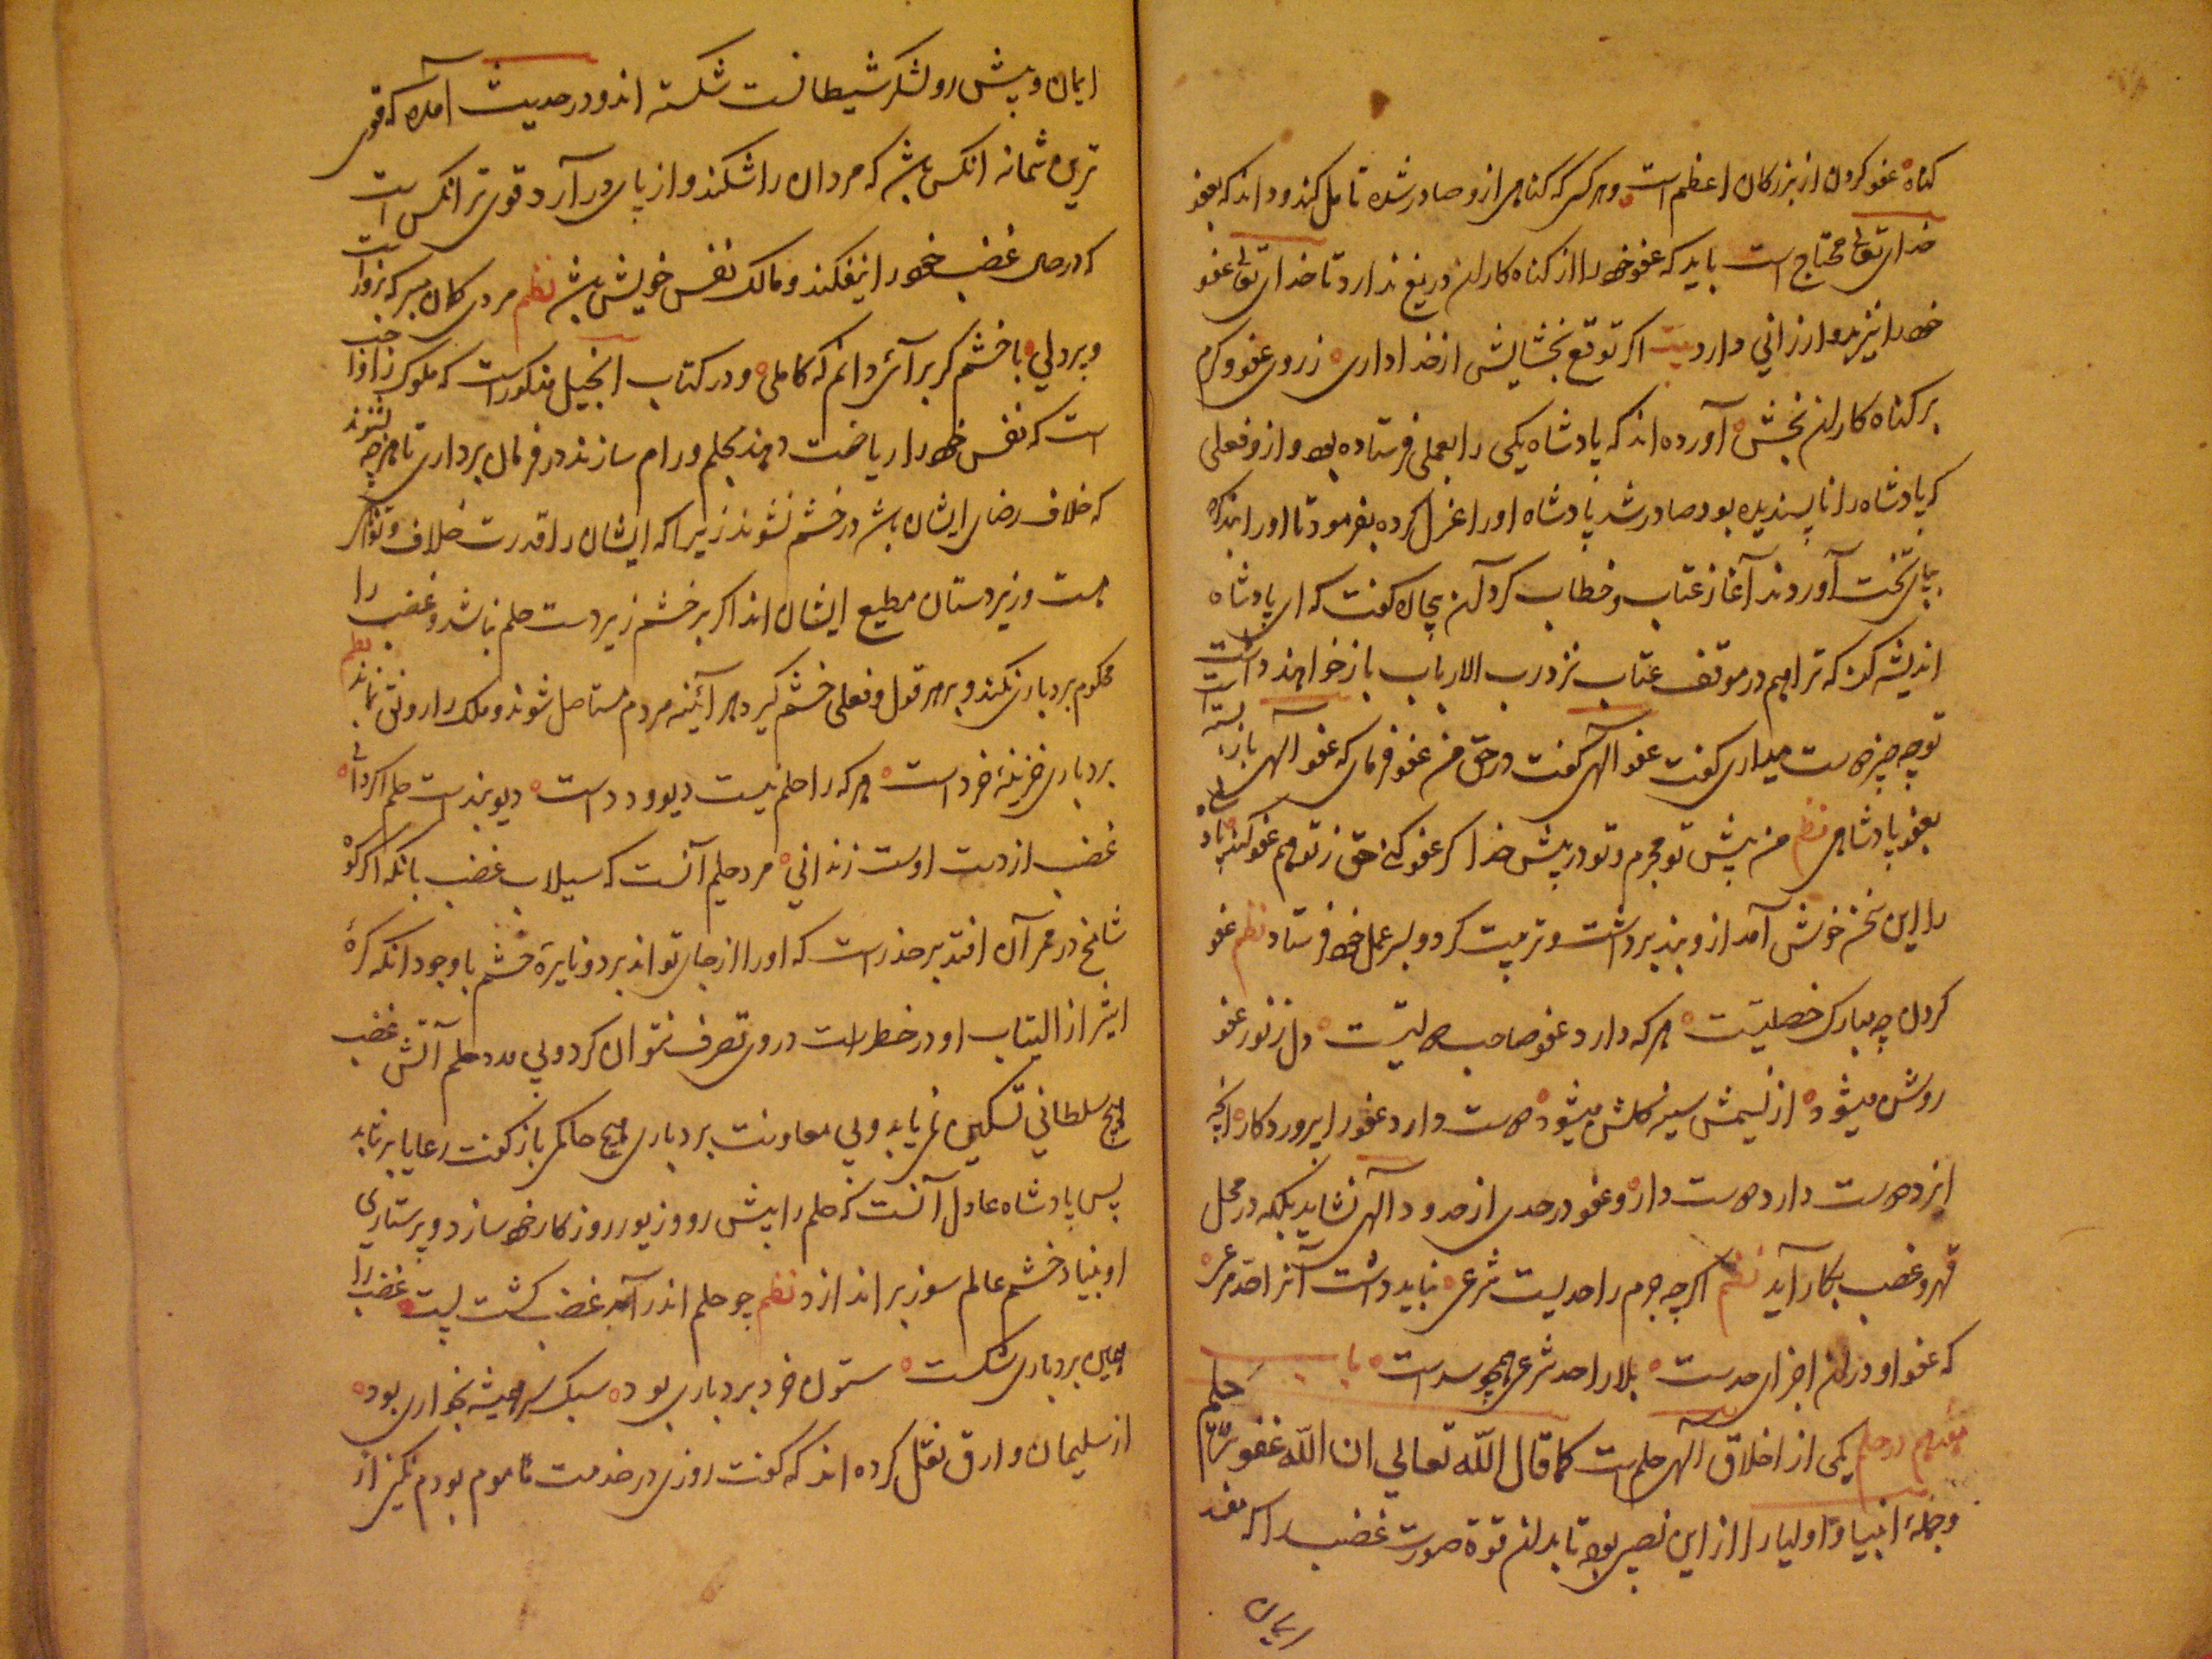 کناه عفو کردن از بزرکان اعظم است و هر کس که کناهی ازو صادر شده تامل کند و داند که بعفو
خدای تعالی محتاج است باید که عفو خود را از کناه کاران دریغ ندارد تا خدای تعالی عفو
خود را نیز بدو ارزانی دارد بیت اکر توقع بخشایش از خدا داری ز روی عفو و کرم
بر کناه کاران بخش آورده اند که پادشاه یکی را بعملی فرستاده بود و ازو فعلی
که پادشاه را ناپسندیده بود صادر شد پادشاه او را عزل کرده بفرمود تا او را
بپای تخت آوردند آغاز عتاب و خطاب کرد آن بیچاره کفت که ای پادشاه
اندیشه کن که ترا هم در موقف عتاب نزد رب الارباب باز خواهند داشت
تو چه چیز دوست میداری کفت عفو آلهی کفت در حق من عفو فرمای که عفو آلهی باز بسته است
بعفو پادشاهی نظم من پیش تو مجرم و تو در پیش خدا کر عفو کنی حق ز تو هم عفو کند پادشاه
را این سخن خوش آمد ازو بند برداشت و تربیت کرد و بسر عمل خود فرستاد نظم عفو
کردن چه مبارک خصلتیست هر که دارد عفو صاحب دولتیست دل ز نور عفو
روشن میشود از نسیمش سینه کلشن میشود دوست دارد عفو را پروردکار انچه
ایزد دوست دارد دوست دار و عفو در حدی از حدود آلهی نشاید بلکه در محل
قهر و غضب بکار آید نظم اکرچه جرم را حدیست شرعی نباید داشت آنرا حد مرعی
که عفو او در ان اجرای حدست بلا را حد شرعی همچو سداست باب
هفدهم در حلم یکی از اخلاق آلهی حلم است کما قال الله تعالی ان الله غفور حلیم
و جملهٔ انبیا و اولیا را از این نصیبی بوده تا بدان قوة صورت غضب را که مفسد
ایمان
ایمان و پیش رو لشکر شیطانست شکسته اند و در حدیث آمده که قوی
ترین شمانه انکس باشد که مردان را شکند و از پای درآرد قوی تر انکس است
که در حین غضب خود را نیفکند و مالک نفس خویش باشد نظم مردی کمان مبر که بزورست
و پردلی با خشم کر برآئی دانم که کاملی و در کتاب انجیل مذکور است که ملوک را واجب
است که نفس خود را ریاضت دهند بحلم و رام سازند در فرمان برداری تا هرچه بشنوند
که خلاف رضای ایشان باشد در خشم نشوند زیرا که ایشان را قدرت خلاف و تونکر
هست و زیردستان مطیع ایشان اند اکر بر خشم زیردست حلم نباشد و غضب را
محکوم بردباری نکند و بر هر قول و فعلی خشم کیرد هر آئینه مردم مستاصل شوند و ملک را رونق نماند نظم
بردباری خزینهٔ خرد است هر که را حلم نیست دیو و دد است دیو بندست حلم اکر دانی
غضب از دست اوست زندانی مرد حلیم آنست که سیلاب غضب بانکه اکر کوه
شامخ در ممر آن افتد بر حذر است که او را از جای تواند برد و نایرهٔ خشم با وجود انکه کرهٔ
اثیر از التهاب او در خطر است در وی تصرف نتوان کرد و بی مدد حلم آتش غضب
هیچ سلطانی تسکین نمی یابد و بی معاونت بردباری هیچ حاکمی بار کونت رعایا برنتابد
پس پادشاه عادل آنست که حلم را پیش رو و زیور روزکار خود سازد و پرستاری
او بنیاد خشم عالم سوز براندازد نظم چو حلم اندر آمد غضب کشت پست غضب را
همین بردباری شکست ستون خرد بردباری بود سبک سر همیشه بخواری بود
از سلیمان وارق نقل کرده اند که کفت روزی در خدمت مامون بودم نکین از